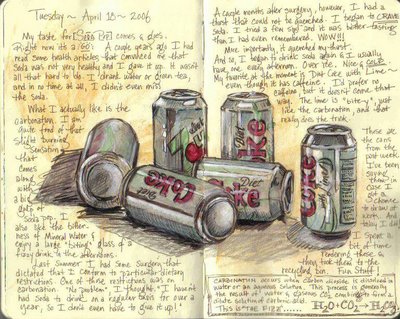 Tuesday ~ April 18 ~ 2006
My taste for Soda Pop comes & goes.
Right now it's a "GO". A couple years ago I had
read some health articles that convinced me that
Soda was not very healthy and I gave it up. It wasn't
all that hard to do. I drank water or green tea,
and in no time at all, I didn't even miss
the soda.
What I actually like is the
carbonation. I am
quite fond of that
slight burning
Sensation
that
comes
along
with
a big
gulp of
Soda pop. I
also like the bitter-
ness of Mineral Water &
enjoy a large "biting" glass of a
fizzy drink in the afternoons.
Last Summer I had some Surgery that
dictated that I conform to particular dietary
restrictions. One of those restrictions was no
carbonation. "No problem," I thought. "I haven't
had Soda to drink on a regular basis for over a
year, so I don't even have to give it up!"
A couple months after surgery, however, I had a
thirst that could not be quenched. I began to CRAVE
Soda. I tried a few sips and it was better tasting
than I had even remembered. WOW!!!
More importantly, it quenched my thirst.
And so, I began to drink soda again & I usually
have one every afternoon. Over ice. Nice & COLD.
My favorite at the moment is "Diet Coke with Lime" -
even though it has caffeine. I'd prefer no
caffeine but it doesn't come that
way. The lime is "bitey", just
like the carbonation, and that
really does the trick.
These are
the cans
from the
past week.
I've been
saving
them in
case I
got a
chance
to draw or
sketch. And
today I did
I spent a
bit of time
rendering these &
they took head to the
recycling bin. Fun Stuff!
Diet
Coke
Diet
Coke
Diet
Coke
Diet
Coke
with Lime
CARBONATION occurs when carbon dioxide is dissolved in
water or an aqueous solution. This process is generally
the result of water & gaseous CO2 combining to form a
dilute solution of carbonic acid.
This is the FIZZ
H2O + CO2 → H2CO3